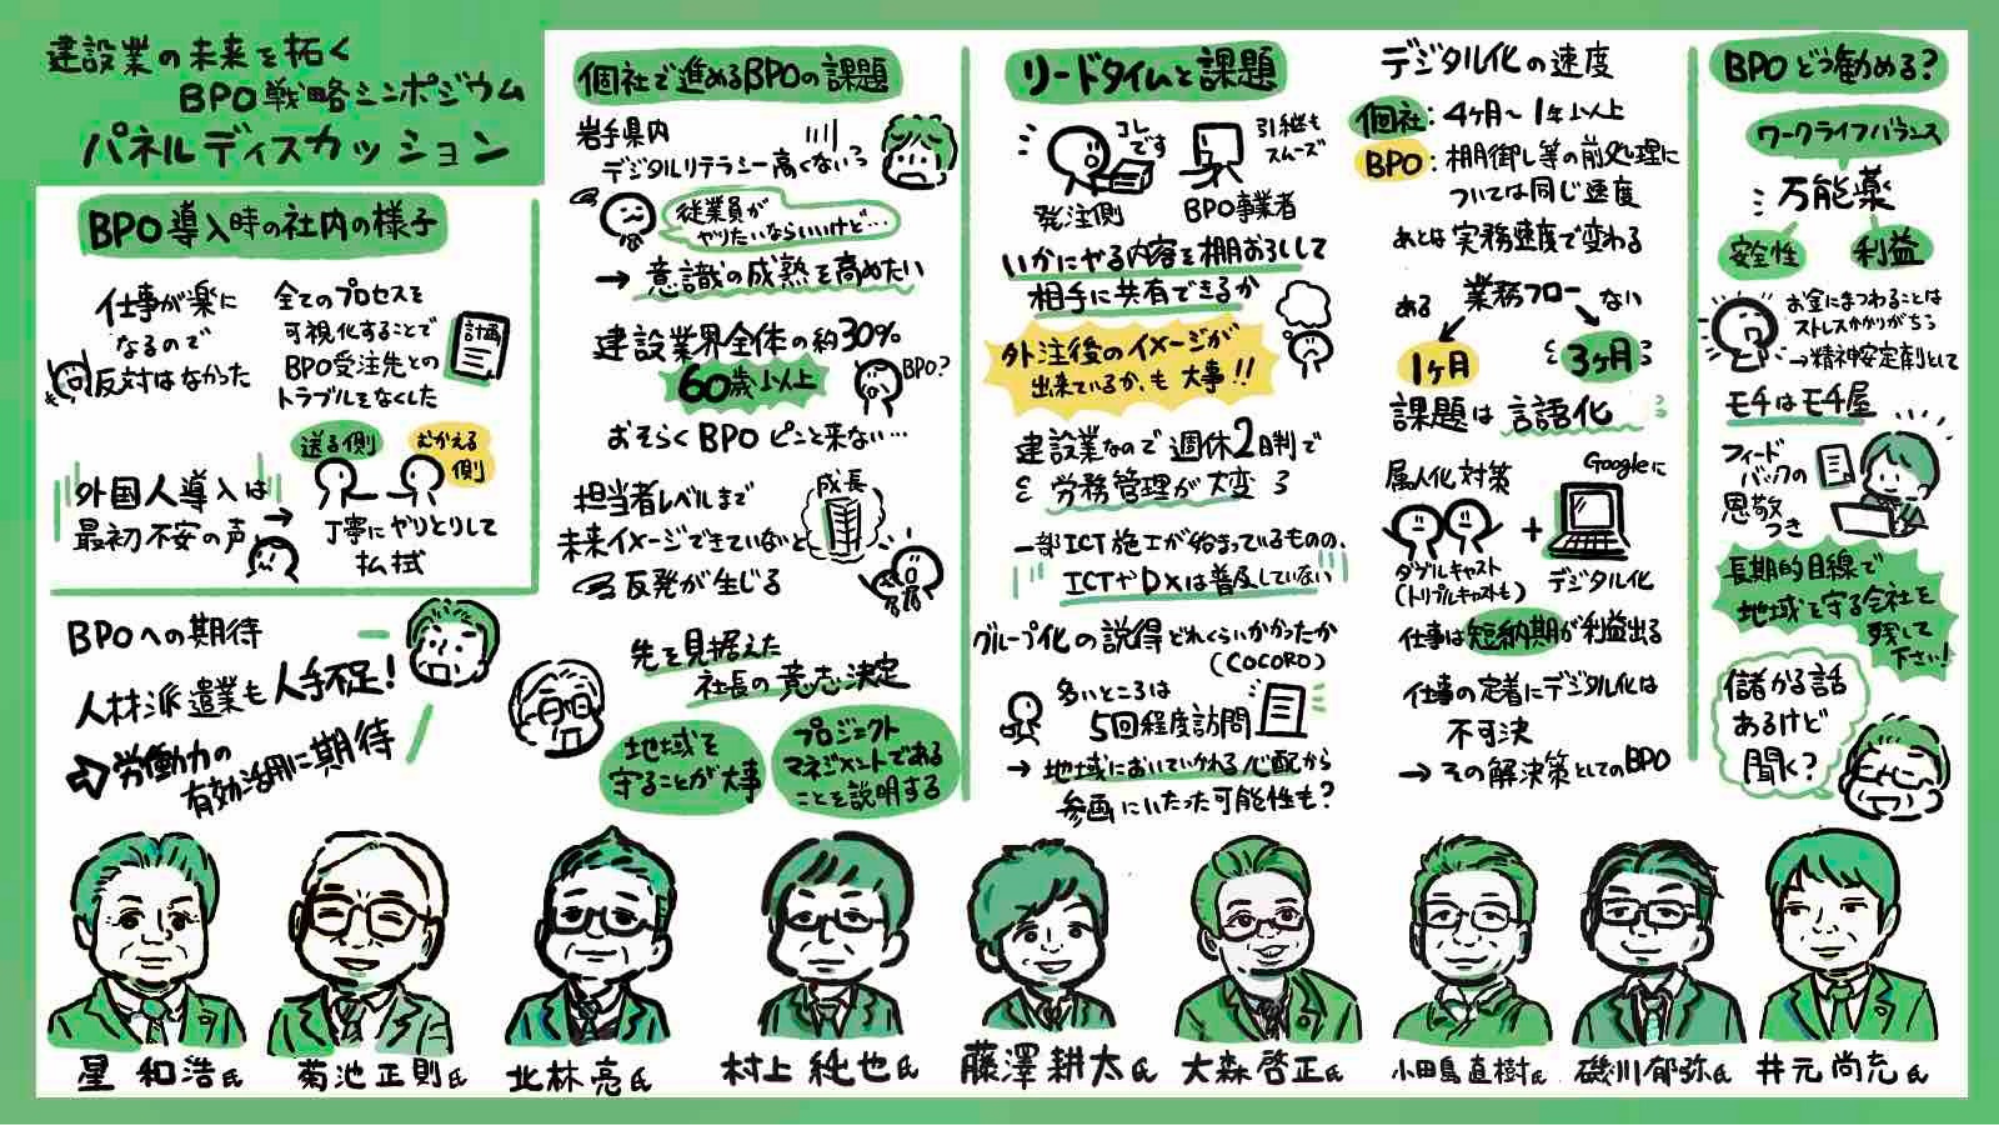 建設業の未来を拓く
BPO戦略シンポジウム
パネルディスカッション
BPO導入時の社内の様子
仕事が楽に
なるので
反対はなかった
全てのプロセスを
可視化することで
BPO受注先との
トラブルをなくした
計画
外国人導入は
最初不安の声
送る側
むかえる
側
丁寧にやりとりして
払拭
BPOへの期待
人材派遣業も人手不足!
労働力の
有効活用に期待
個社で進めるBPOの課題
岩手県内
デジタルリテラシー高くない
従業員が
やりたいならいいけど…
→ 意識の成熟を高めたい
建設業界全体の約30%
60歳以上
BPO?
おそらくBPOピンと来ない…
担当者レベルまで
未来イメージできていないと
反発が生じる
成長
先を見据えた
社長の意志決定
地域を
守ることが大事
プロジェクト
マネジメントである
ことを説明する
リードタイムと課題
コレ
です
発注側
引継も
スムーズ
BPO事業者
いかにやる内容を棚おろしして
相手に共有できるか
外注後のイメージが
出来ているか、も大事!!
建設業なので週休2日制で
労務管理が大変
一部ICT施工が始まっているものの、
ICTやDXは普及していない
グループ化の説得どれくらいかかったか
(COCORO)
多いところは
5回程度訪問
→ 地域においていかれる心配から
参画にいたった可能性も?
デジタル化の速度
個社:4ヶ月〜1年以上
BPO:棚御し等の前処理に
ついては同じ速度
あとは実務速度で変わる
業務フロー
ある
ない
1ヶ月
3ヶ月
課題は言語化
属人化対策
Googleに
+
ダブルキャスト
(トリプルキャストも)
デジタル化
仕事は短納期が利益出る
仕事の定着にデジタル化は
不可決
→その解決策としてのBPO
BPOどう勧める?
ワークライフバランス
万能薬
安全性
利益
お金にまつわることは
ストレスかかりがち
→精神安定剤として
モチはモチ屋
フィード
バックの
恩敬
つき
長期的目線で
地域を守る会社を
残して
下さい!
儲かる話
あるけど
聞く?
星 和浩氏
菊池正則氏
北林亮氏
村上純也氏
藤澤耕太氏
大森啓正氏
小田島直樹氏
磯川郁弥氏
井元尚充氏